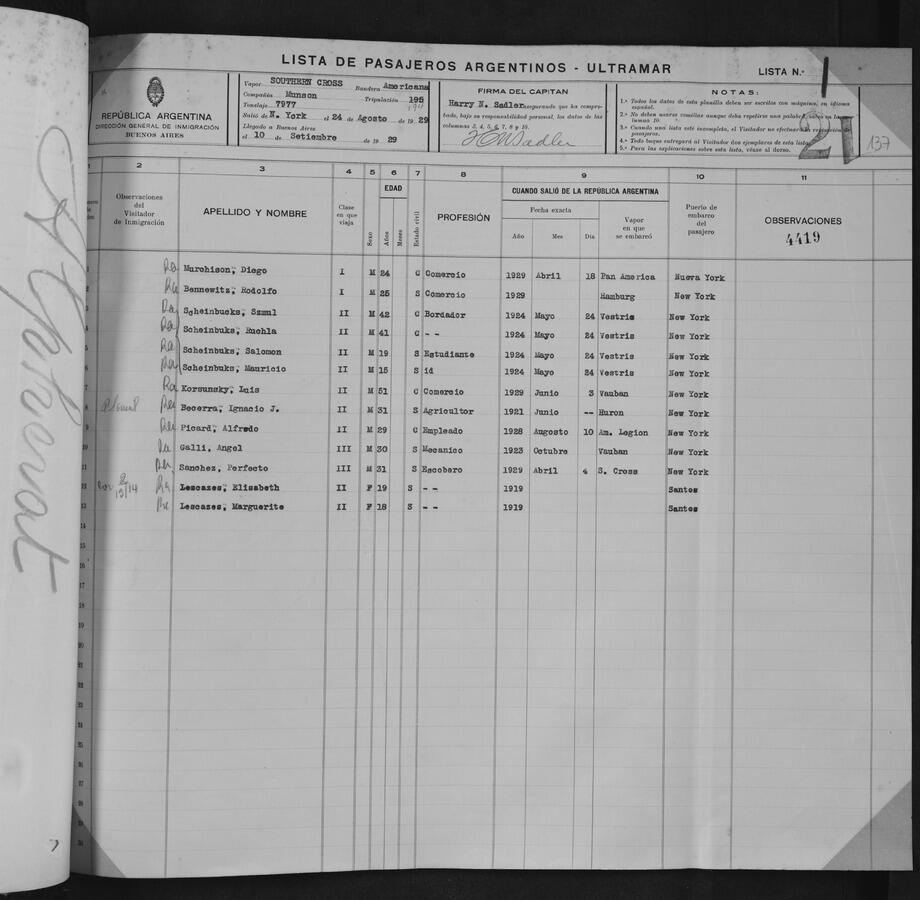 LISTA DE PASAJEROS ARGENTINOS - ULTRAMAR
LISTA N.º
21
137
REPÚBLICA ARGENTINA
DIRECCIÓN GENERAL DE INMIGRACIÓN
BUENOS AIRES
Vapor SOUTHERN CROSS Bandera Americana
Compañía Munson Tripulación 195
Tonelaje 7977
Salió de N. York el 24 de Agosto de 1929
Llegado a Buenos Aires
el 10 de Setiembre de 1929
FIRMA DEL CAPITAN
Harry N. Sadler asegurando que ha compro-
bado, bajo su responsabilidad personal, los datos de las
columnas 3, 4, 5, 6, 7, 8 y 10.
NOTAS:
1.ª Todos los datos de esta planilla deben ser escritos con máquina, en idioma
español.
2.ª No deben usarse comillas aunque deba repetirse una palabra, salvo en las co-
lumnas 10.
3.ª Cuando una lista esté incompleta, el Visitador no efectuará la recepción de
pasajeros.
4.ª Todo buque entregará al Visitador dos ejemplares de esta lista.
5.ª Para las explicaciones sobre esta lista, véase al dorso.
1 2 3 4 5 6 7 8 9 10 11
Observaciones del Visitador de Inmigración
APELLIDO Y NOMBRE
Clase en que viaja
Sexo
EDAD
Años
Meses
Estado civil
PROFESIÓN
CUANDO SALIÓ DE LA REPÚBLICA ARGENTINA
Fecha exacta
Año Mes Día
Vapor en que se embarcó
Puerto de embarco del pasajero
OBSERVACIONES
4419
Murchison, Diego I M 24 C Comercio 1929 Abril 18 Pan America Nueva York
Bennewitz, Rodolfo I M 25 S Comercio 1929 Hamburg New York
Scheinbucks, Szmul II M 42 C Bordador 1924 Mayo 24 Vestris New York
Scheinbuks, Ruchla II M 41 C -- 1924 Mayo 24 Vestris New York
Scheinbuks, Salomon II M 19 S Estudiante 1924 Mayo 24 Vestris New York
Scheinbuks, Mauricio II M 15 S id 1924 Mayo 24 Vestris New York
Korsunsky, Luis II M 51 C Comercio 1929 Junio 3 Vauban New York
Becerra, Ignacio J. II M 31 S Agricultor 1921 Junio -- Huron New York
Picard, Alfredo II M 29 C Empleado 1928 Augosto 10 Am. Legion New York
Galli, Angel III M 30 S Mecanico 1923 Octubre Vauban New York
Sanchez, Perfecto III M 31 S Escobero 1929 Abril 4 S. Cross New York
Lescazes, Elisabeth II F 19 S -- 1919 Santos
Lescazes, Marguerite II F 18 S -- 1919 Santos